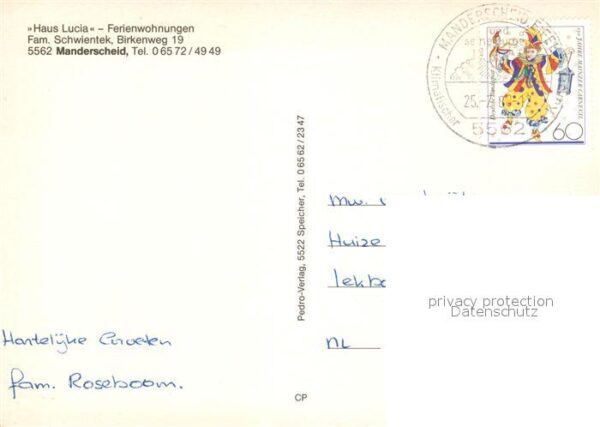 »Haus Lucia« – Ferienwohnungen
Fam. Schwientek, Birkenweg 19
5562 Manderscheid, Tel. 0 65 72 / 49 49
MANDERSCHEID/EIFEL
25.
5562
150 JAHRE MAINZER CARNEVAL
60
Pedro-Verlag, 5522 Speicher, Tel. 0 65 62 / 23 47
Mw.
Huize
NL
privacy protection
Datenschutz
Hartelijke Groeten
fam. Roseboom.
CP